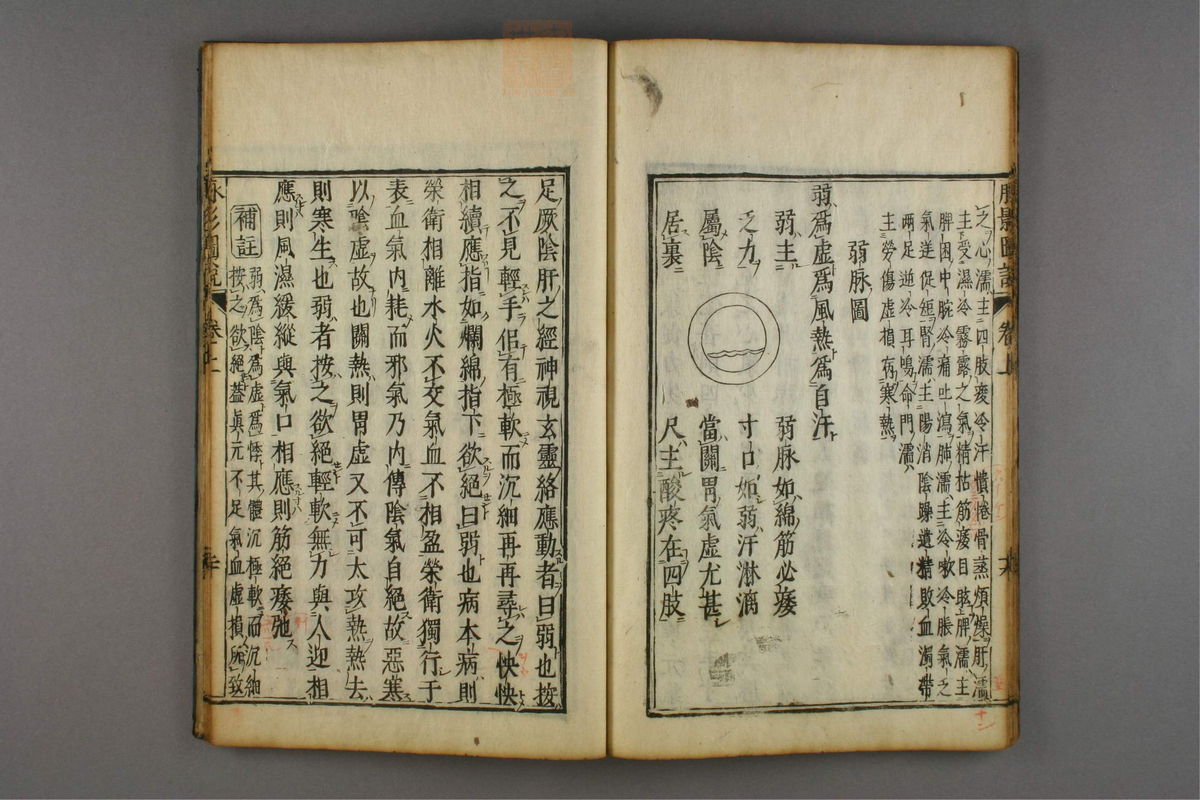 脉影圖說 卷上
之心濡主四肢痿冷汗憒惓骨蒸煩燥肝濡
主受濕冷霧露之氣精枯筋痿目眩脾濡主
脾困中脘冷痛吐瀉肺濡主冷嗽冷脹氣之
氣逆促短腎濡主陽消陰躁遺精敗血濁帶
兩足逆冷耳鳴命門濡
主勞傷虛損病寒熱
弱脉圖
弱爲虛爲風熱爲自汗
弱主 弱脉如綿筋必痿
乏力 寸口如弱汗淋漓
屬陰 當關胃氣虛尤甚
居裏 尺主酸疼在四肢
足厥陰肝之經神視玄靈絡應動者曰弱也按
之不見輕手侶有極軟而沉細再再尋之快快
相續應指如爛綿指下欲絕曰弱也病本病則
榮衛相離水火不交氣血不相盈榮衛獨行于
表血氣内耗而邪氣乃内傳陰氣自絕故惡寒
以陰虛故也關熱則胃虛又不可太攻熱熱去
則寒生也弱者按之欲絕輕軟無力與人迎相
應則風濕緩縱與氣口相應則筋絕痿弛
補註
弱爲陰爲虛爲悸其體沉極軟而沉細
按之欲絕蓋真元不足氣血虛損所致
脉影圖說 卷上